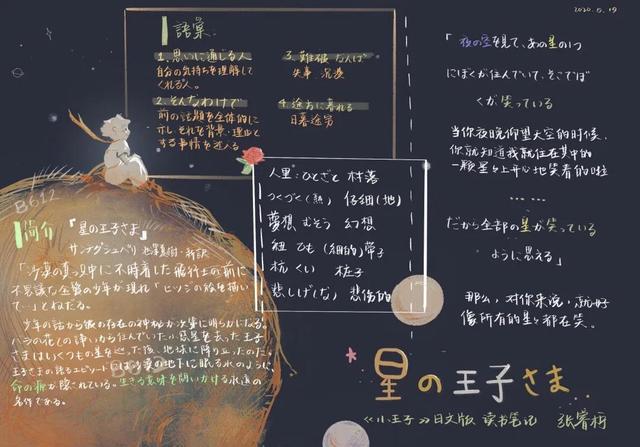 2020.5.19
語彙
1. 思いに通じる人
自分の気持ちを理解して
くれる人。
2. そんなわけで
前の話題を全体的に
示しそれを背景、理由と
する事情を述べる
3. 難破 なんぱ
失事 沉没
4. 途方に暮れる
日暮途穷
人里:ひとざと 村落
つくづく(熟) 仔细(地)
夢想 むそう 幻想
紐 ひも (细的)带子
杭 くい 桩子
悲しげ(な) 悲伤的
B612
简介
『星の王子さま』
サンテグジュペリ 池澤夏樹・新訳
「沙漠の真っ只中に不時着した飛行士の前に
不思議な金髪の少年が現れ「ヒツジの絵を描い
て…」とねだる。
少年の話から彼の存在の神秘が次第に明らかになる。
バラの花との諍いから住んでいた小惑星を去った王子
さまはいくつもの星を巡った後、地球に降り立ったのだ。
王子さまの語るエピソードには沙漠の地下に眠る水のように、
命の源が隠されている。生きる意味を問いかける永遠の
名作である。
「夜の空を見て、あの星の1つ
にぼくが住んでいて、そこでぼ
くが笑っている
当你夜晚仰望天空的时候、
你就知道我就住在其中的
一颗星々上开心地笑着的啦
……
だから全部の星が笑っている
ように思える」
那么，对你来说，就好
像所有的星々都在笑。
星の王子さま..
《小王子》日文版 读书笔记